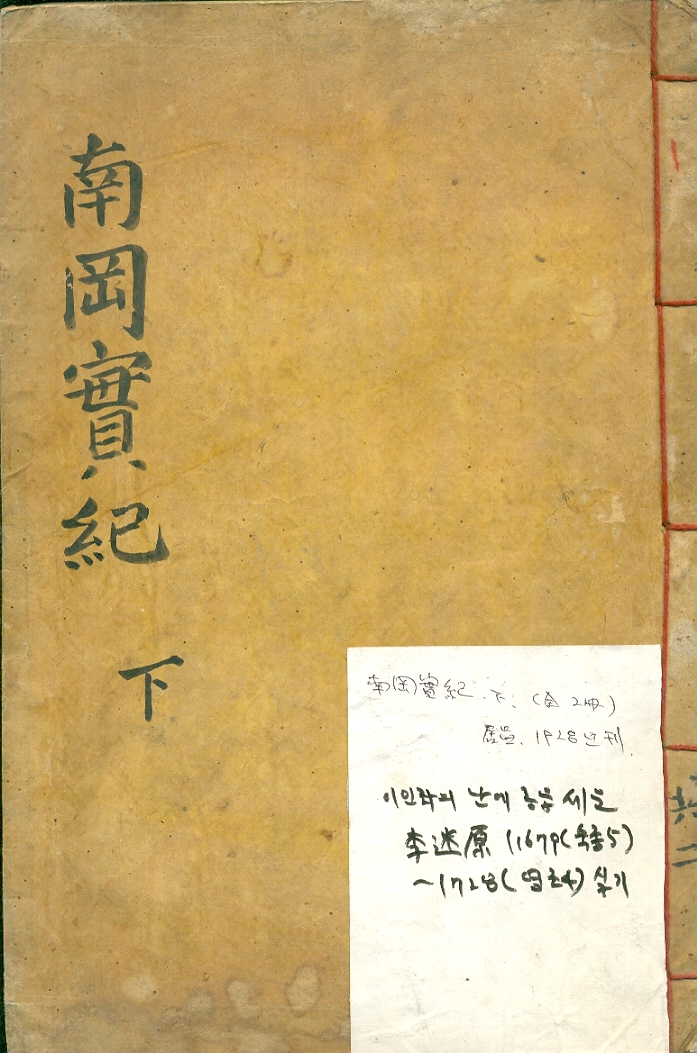 南岡實紀
下
南岡實紀. 下. (全 2冊)
居昌. 1928년刊.
이인좌의 난에 공을 세운
李述原 (1679(숙종5)
~1728(영조4) 실기
共二